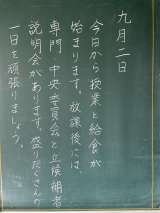 九月二日
今日から授業と給食が
始まります。放課後には
専門中央委員会と立候補者
説明会があります。盛りだくさんの
一日を頑張りましょう。